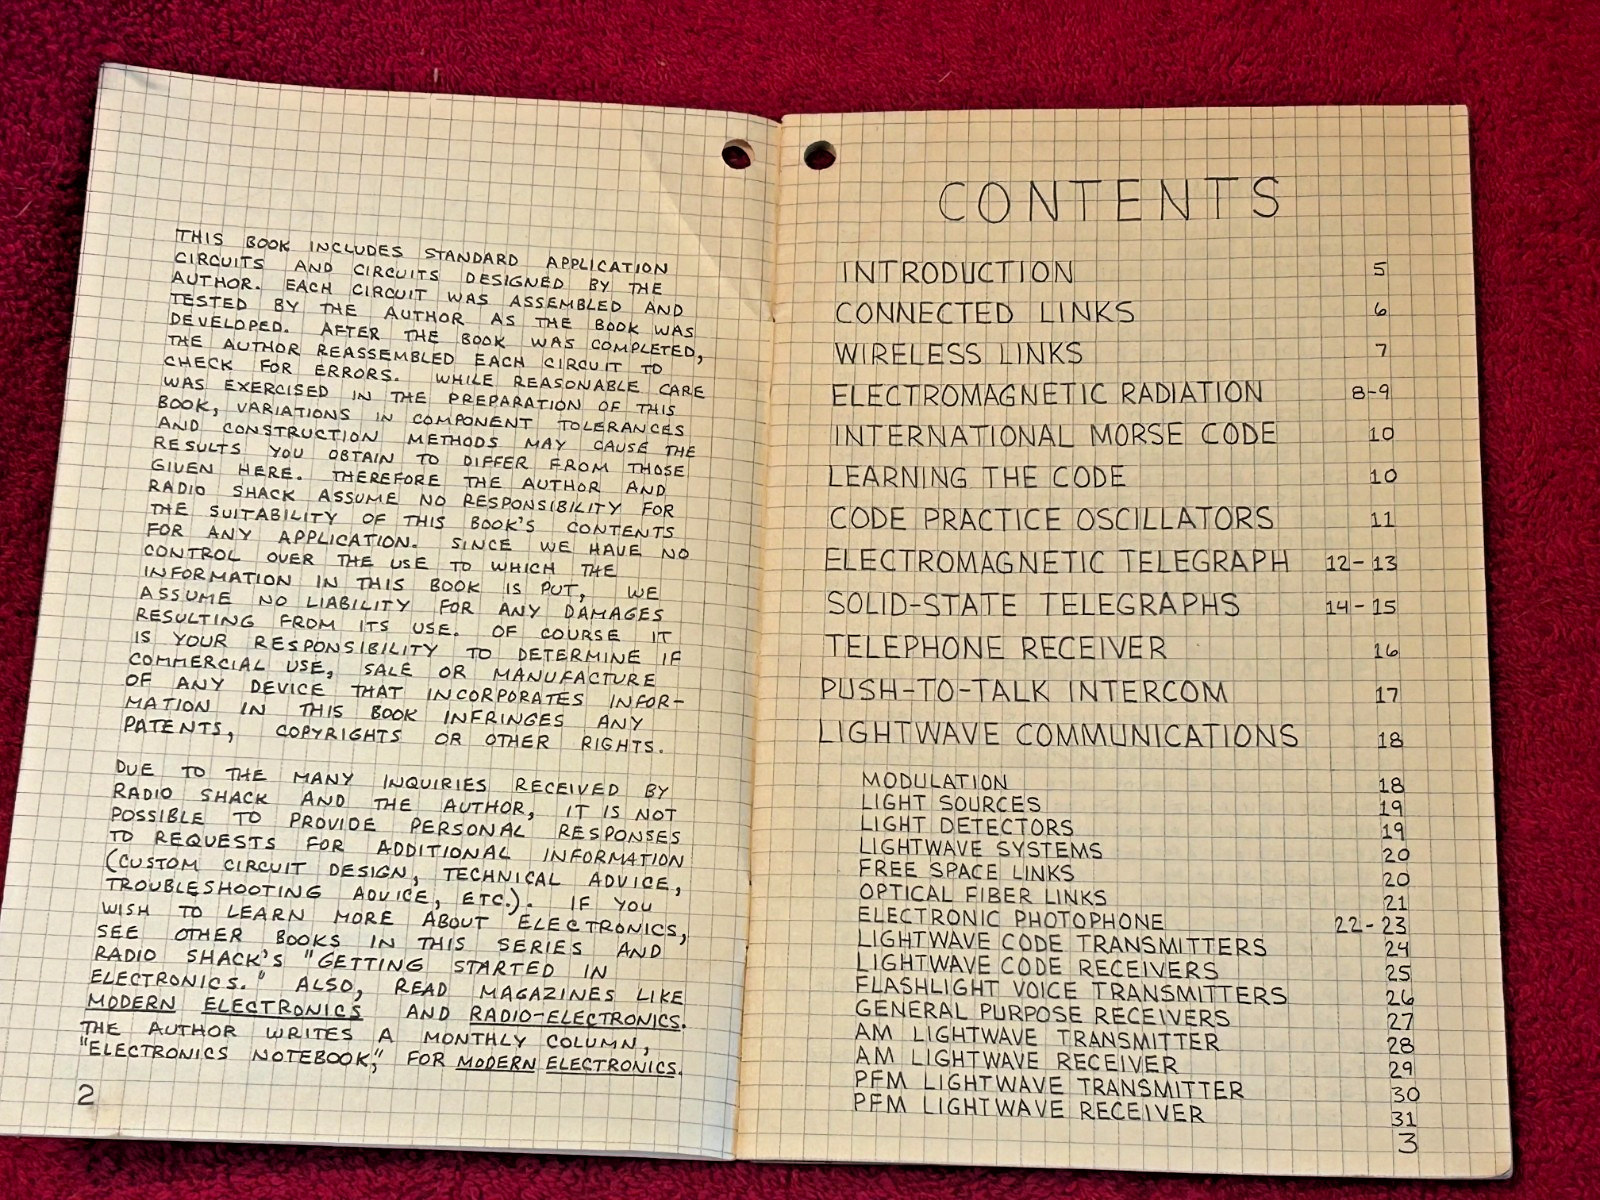 THIS BOOK INCLUDES STANDARD APPLICATION
CIRCUITS AND CIRCUITS DESIGNED BY THE
AUTHOR. EACH CIRCUIT WAS ASSEMBLED AND
TESTED BY THE AUTHOR AS THE BOOK WAS
DEVELOPED. AFTER THE BOOK WAS COMPLETED,
THE AUTHOR REASSEMBLED EACH CIRCUIT TO
CHECK FOR ERRORS. WHILE REASONABLE CARE
WAS EXERCISED IN THE PREPARATION OF THIS
BOOK, VARIATIONS IN COMPONENT TOLERANCES
AND CONSTRUCTION METHODS MAY CAUSE THE
RESULTS YOU OBTAIN TO DIFFER FROM THOSE
GIVEN HERE. THEREFORE THE AUTHOR AND
RADIO SHACK ASSUME NO RESPONSIBILITY FOR
THE SUITABILITY OF THIS BOOK'S CONTENTS
FOR ANY APPLICATION. SINCE WE HAVE NO
CONTROL OVER THE USE TO WHICH THE
INFORMATION IN THIS BOOK IS PUT, WE
ASSUME NO LIABILITY FOR ANY DAMAGES
RESULTING FROM ITS USE. OF COURSE IT
IS YOUR RESPONSIBILITY TO DETERMINE IF
COMMERCIAL USE, SALE OR MANUFACTURE
OF ANY DEVICE THAT INCORPORATES INFOR-
MATION IN THIS BOOK INFRINGES ANY
PATENTS, COPYRIGHTS OR OTHER RIGHTS.
DUE TO THE MANY INQUIRIES RECEIVED BY
RADIO SHACK AND THE AUTHOR, IT IS NOT
POSSIBLE TO PROVIDE PERSONAL RESPONSES
TO REQUESTS FOR ADDITIONAL INFORMATION
(CUSTOM CIRCUIT DESIGN, TECHNICAL ADVICE,
TROUBLESHOOTING ADVICE, ETC.). IF YOU
WISH TO LEARN MORE ABOUT ELECTRONICS,
SEE OTHER BOOKS IN THIS SERIES AND
RADIO SHACK'S "GETTING STARTED IN
ELECTRONICS." ALSO, READ MAGAZINES LIKE
MODERN ELECTRONICS AND RADIO-ELECTRONICS.
THE AUTHOR WRITES A MONTHLY COLUMN,
"ELECTRONICS NOTEBOOK," FOR MODERN ELECTRONICS.
2
CONTENTS
INTRODUCTION 5
CONNECTED LINKS 6
WIRELESS LINKS 7
ELECTROMAGNETIC RADIATION 8-9
INTERNATIONAL MORSE CODE 10
LEARNING THE CODE 10
CODE PRACTICE OSCILLATORS 11
ELECTROMAGNETIC TELEGRAPH 12-13
SOLID-STATE TELEGRAPHS 14-15
TELEPHONE RECEIVER 16
PUSH-TO-TALK INTERCOM 17
LIGHTWAVE COMMUNICATIONS 18
MODULATION 18
LIGHT SOURCES 19
LIGHT DETECTORS 19
LIGHTWAVE SYSTEMS 20
FREE SPACE LINKS 20
OPTICAL FIBER LINKS 21
ELECTRONIC PHOTOPHONE 22-23
LIGHTWAVE CODE TRANSMITTERS 24
LIGHTWAVE CODE RECEIVERS 25
FLASHLIGHT VOICE TRANSMITTERS 26
GENERAL PURPOSE RECEIVERS 27
AM LIGHTWAVE TRANSMITTER 28
AM LIGHTWAVE RECEIVER 29
PFM LIGHTWAVE TRANSMITTER 30
PFM LIGHTWAVE RECEIVER 31
3